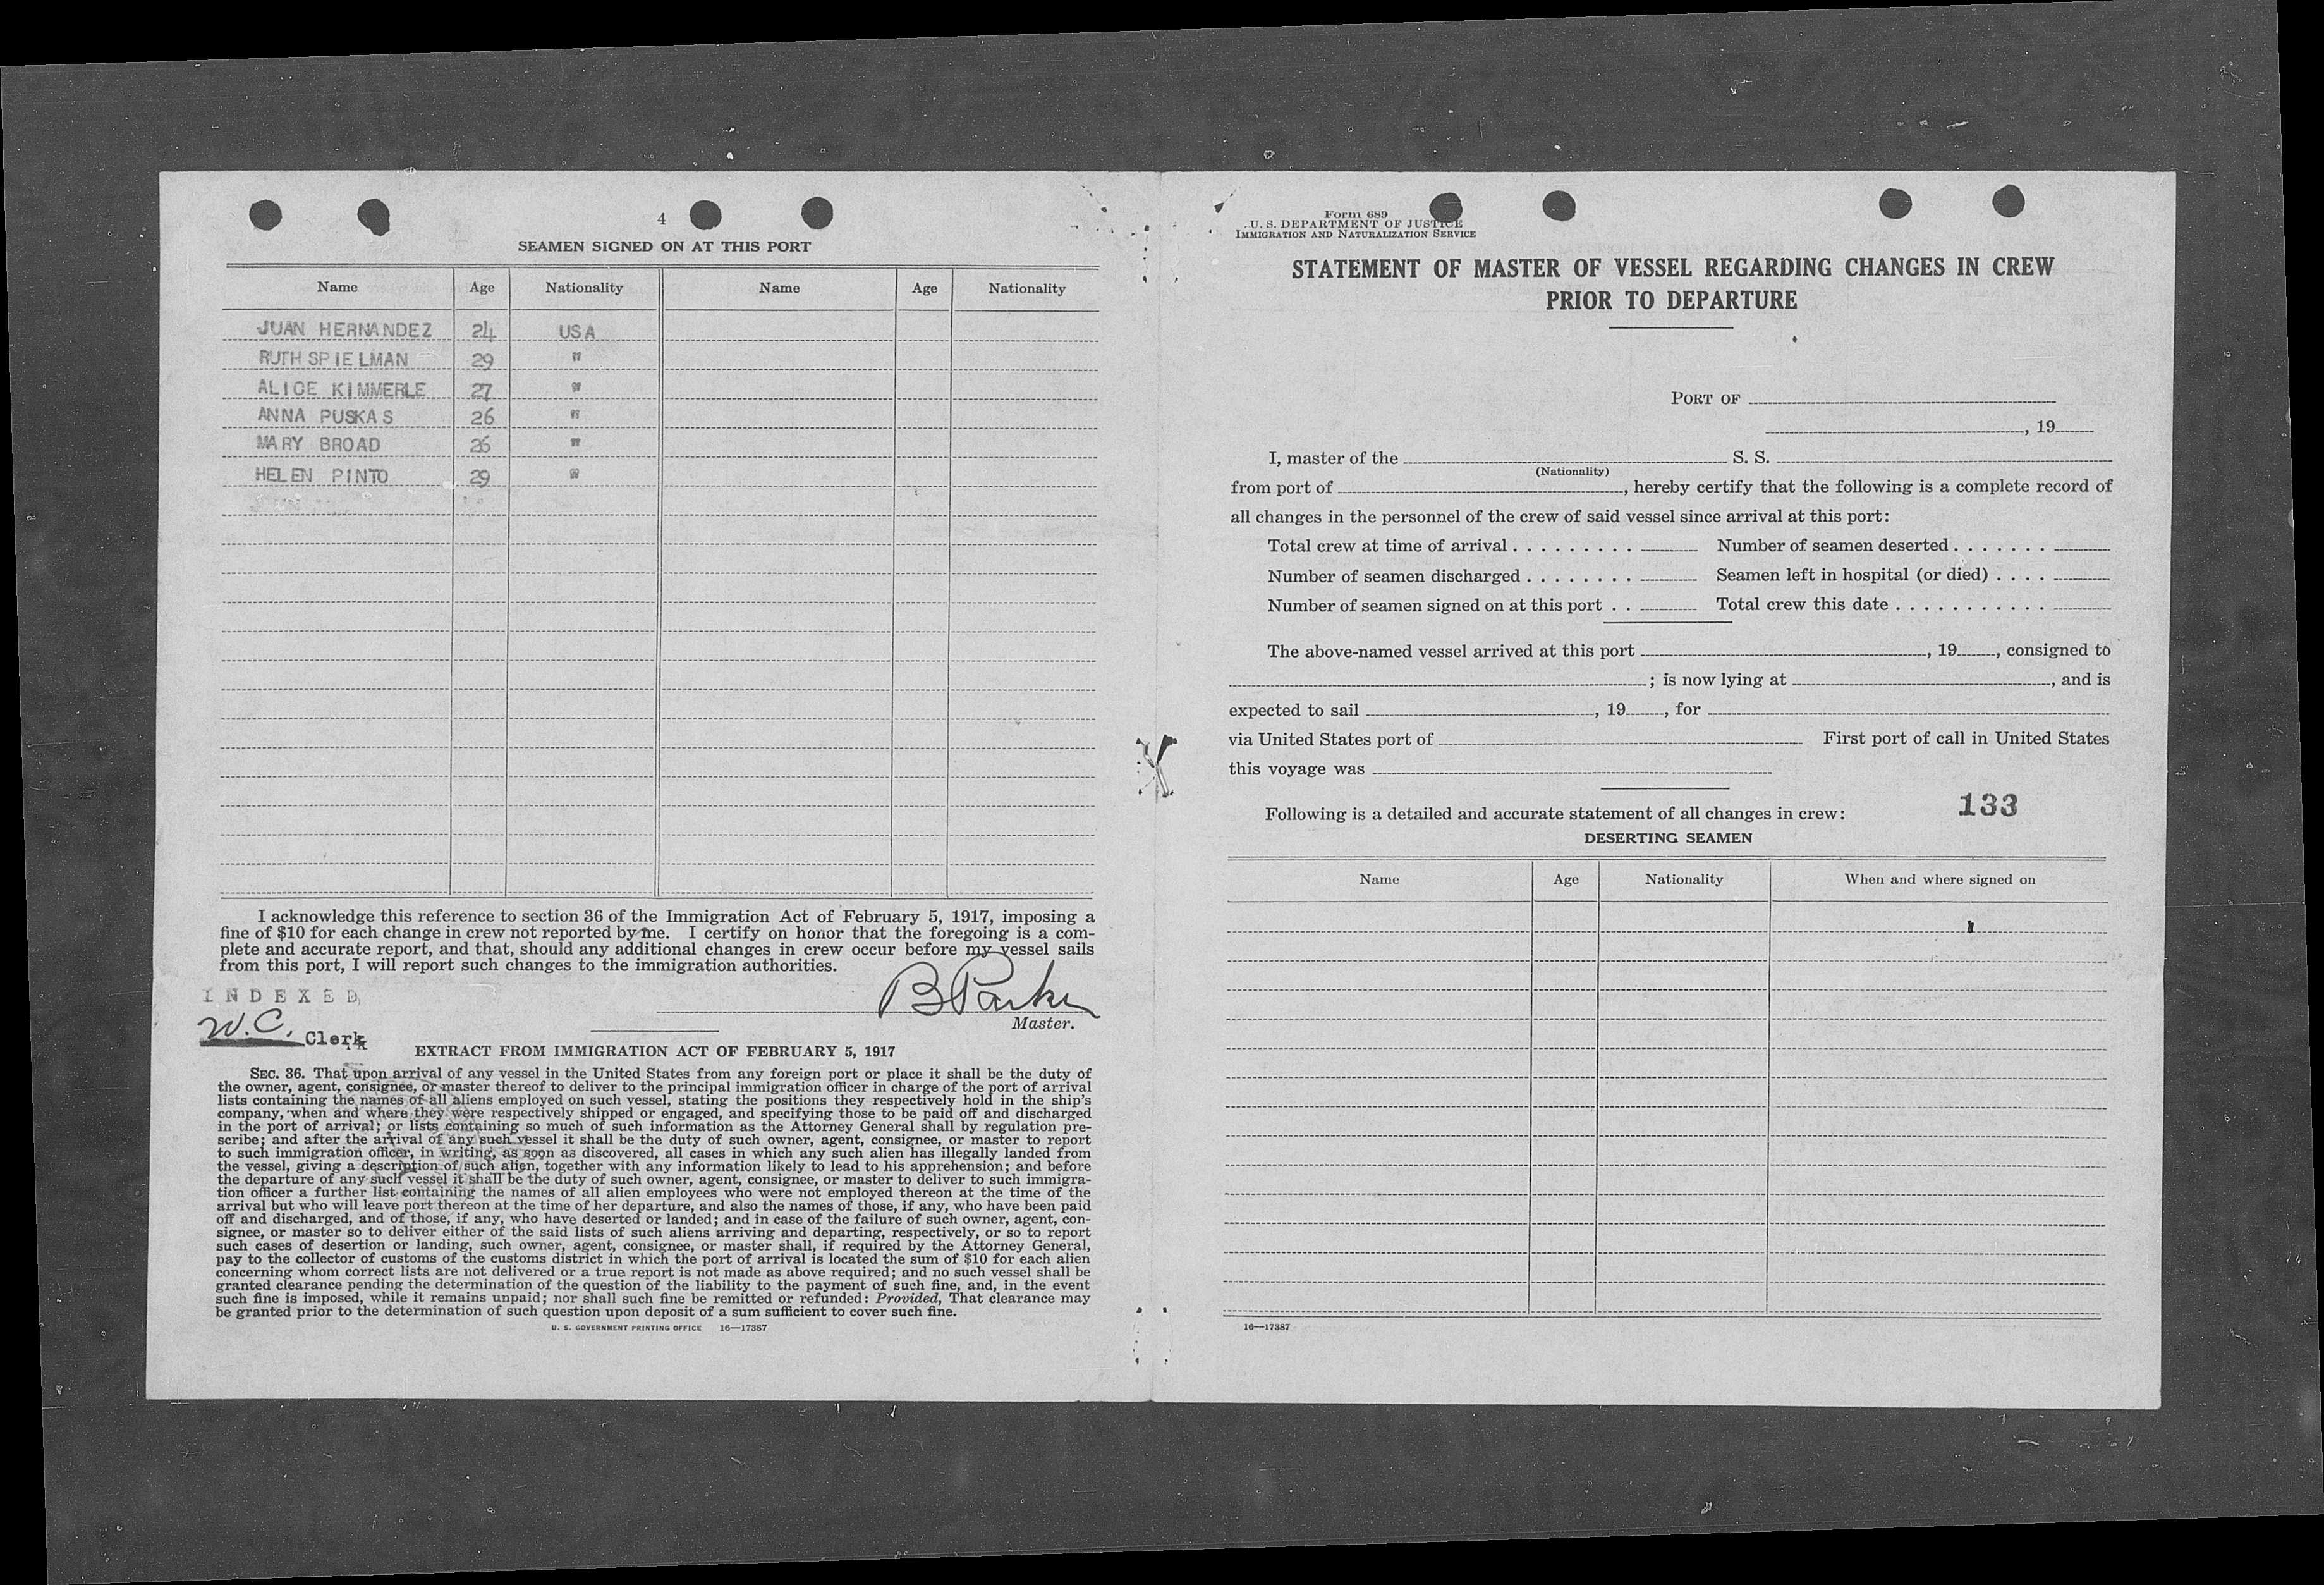 4
SEAMEN SIGNED ON AT THIS PORT
Name Age Nationality Name Age Nationality
JUAN HERNANDEZ 24 USA
RUTH SPIELMAN 29 "
ALICE KIMMERLE 27 "
ANNA PUSKAS 26 "
MARY BROAD 26 "
HELEN PINTO 29 "
I acknowledge this reference to section 36 of the Immigration Act of February 5, 1917, imposing a
fine of $10 for each change in crew not reported by me. I certify on honor that the foregoing is a com-
plete and accurate report, and that, should any additional changes in crew occur before my vessel sails
from this port, I will report such changes to the immigration authorities.
B Parker
Master.
INDEXED
W.C. Clerk
EXTRACT FROM IMMIGRATION ACT OF FEBRUARY 5, 1917
SEC. 36. That upon arrival of any vessel in the United States from any foreign port or place it shall be the duty of
the owner, agent, consignee, or master thereof to deliver to the principal immigration officer in charge of the port of arrival
lists containing the names of all aliens employed on such vessel, stating the positions they respectively hold in the ship's
company, when and where they were respectively shipped or engaged, and specifying those to be paid off and discharged
in the port of arrival; or lists containing so much of such information as the Attorney General shall by regulation pre-
scribe; and after the arrival of any such vessel it shall be the duty of such owner, agent, consignee, or master to report
to such immigration officer, in writing, as soon as discovered, all cases in which any such alien has illegally landed from
the vessel, giving a description of such alien, together with any information likely to lead to his apprehension; and before
the departure of any such vessel it shall be the duty of such owner, agent, consignee, or master to deliver to such immigra-
tion officer a further list containing the names of all alien employees who were not employed thereon at the time of the
arrival but who will leave port thereon at the time of her departure, and also the names of those, if any, who have been paid
off and discharged, and of those, if any, who have deserted or landed; and in case of the failure of such owner, agent, con-
signee, or master so to deliver either of the said lists of such aliens arriving and departing, respectively, or so to report
such cases of desertion or landing, such owner, agent, consignee, or master shall, if required by the Attorney General,
pay to the collector of customs of the customs district in which the port of arrival is located the sum of $10 for each alien
concerning whom correct lists are not delivered or a true report is not made as above required; and no such vessel shall be
granted clearance pending the determination of the question of the liability to the payment of such fine, and, in the event
such fine is imposed, while it remains unpaid; nor shall such fine be remitted or refunded: Provided, That clearance may
be granted prior to the determination of such question upon deposit of a sum sufficient to cover such fine.
U. S. GOVERNMENT PRINTING OFFICE 16—17387
Form 689
U. S. DEPARTMENT OF JUSTICE
IMMIGRATION AND NATURALIZATION SERVICE
STATEMENT OF MASTER OF VESSEL REGARDING CHANGES IN CREW
PRIOR TO DEPARTURE
PORT OF
, 19
I, master of the S. S.
(Nationality)
from port of , hereby certify that the following is a complete record of
all changes in the personnel of the crew of said vessel since arrival at this port:
Total crew at time of arrival . . . . . . . . . Number of seamen deserted . . . . . . .
Number of seamen discharged . . . . . . . . Seamen left in hospital (or died) . . . .
Number of seamen signed on at this port . . Total crew this date . . . . . . . . . . .
The above-named vessel arrived at this port , 19 , consigned to
; is now lying at , and is
expected to sail , 19 , for
via United States port of First port of call in United States
this voyage was
133
Following is a detailed and accurate statement of all changes in crew:
DESERTING SEAMEN
Name Age Nationality When and where signed on
16—17387